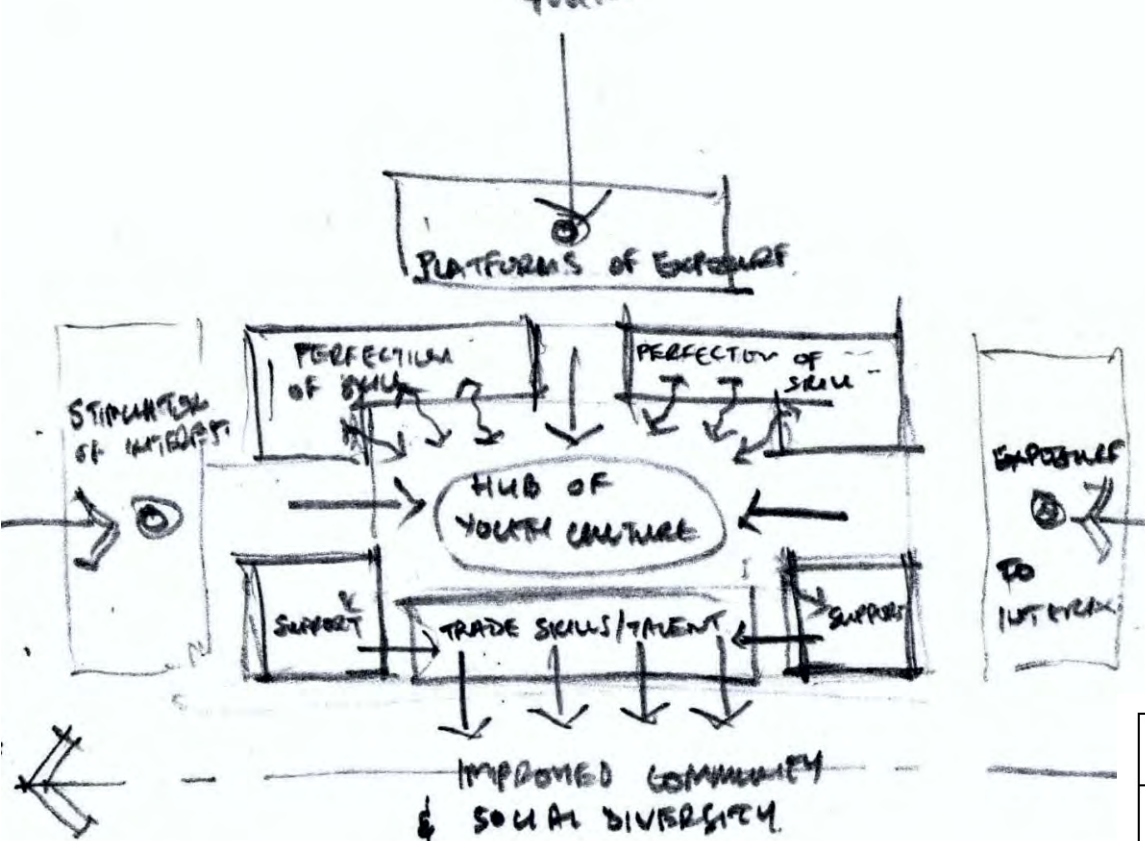 PLATFORMS OF EXPOSURE
PERFECTION
OF SKILL
PERFECTION OF
SKILL
STIMULATION
OF INTEREST
HUB OF
YOUTH CULTURE
EXPOSURE
TO
SUPPORT
TRADE SKILLS/TALENT
SUPPORT
IMPROVED COMMUNITY
& SOCIAL DIVERSITY.